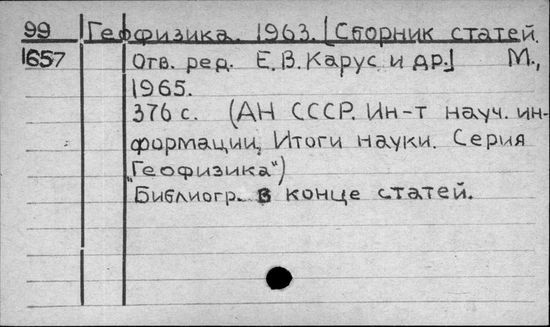 99 Геофизика. 1963. [Сборник статей.
1657 Отв. ред. Е.В. Карус и др.] М.,
1965.
376 с. (АН СССР. Ин-т науч. ин-
формации, Итоги науки. Серия
"Геофизика")
Библиогр. в конце статей.